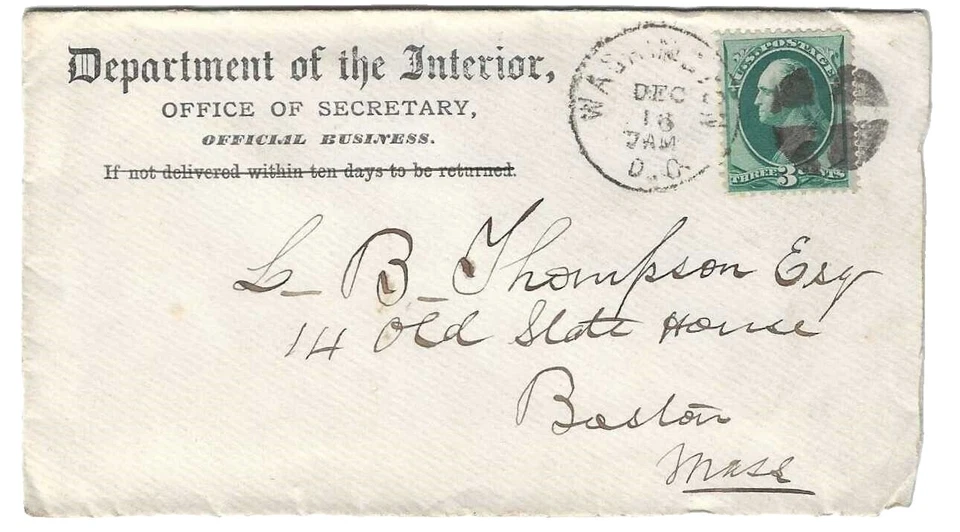 Department of the Interior,
OFFICE OF SECRETARY,
OFFICIAL BUSINESS.
If not delivered within ten days to be returned.
WASHINGTON
DEC
18
7AM
D.C.
U.S. POSTAGE
THREE 3 CENTS
L. B. Thompson Esq
14 Old State House
Boston
Mass